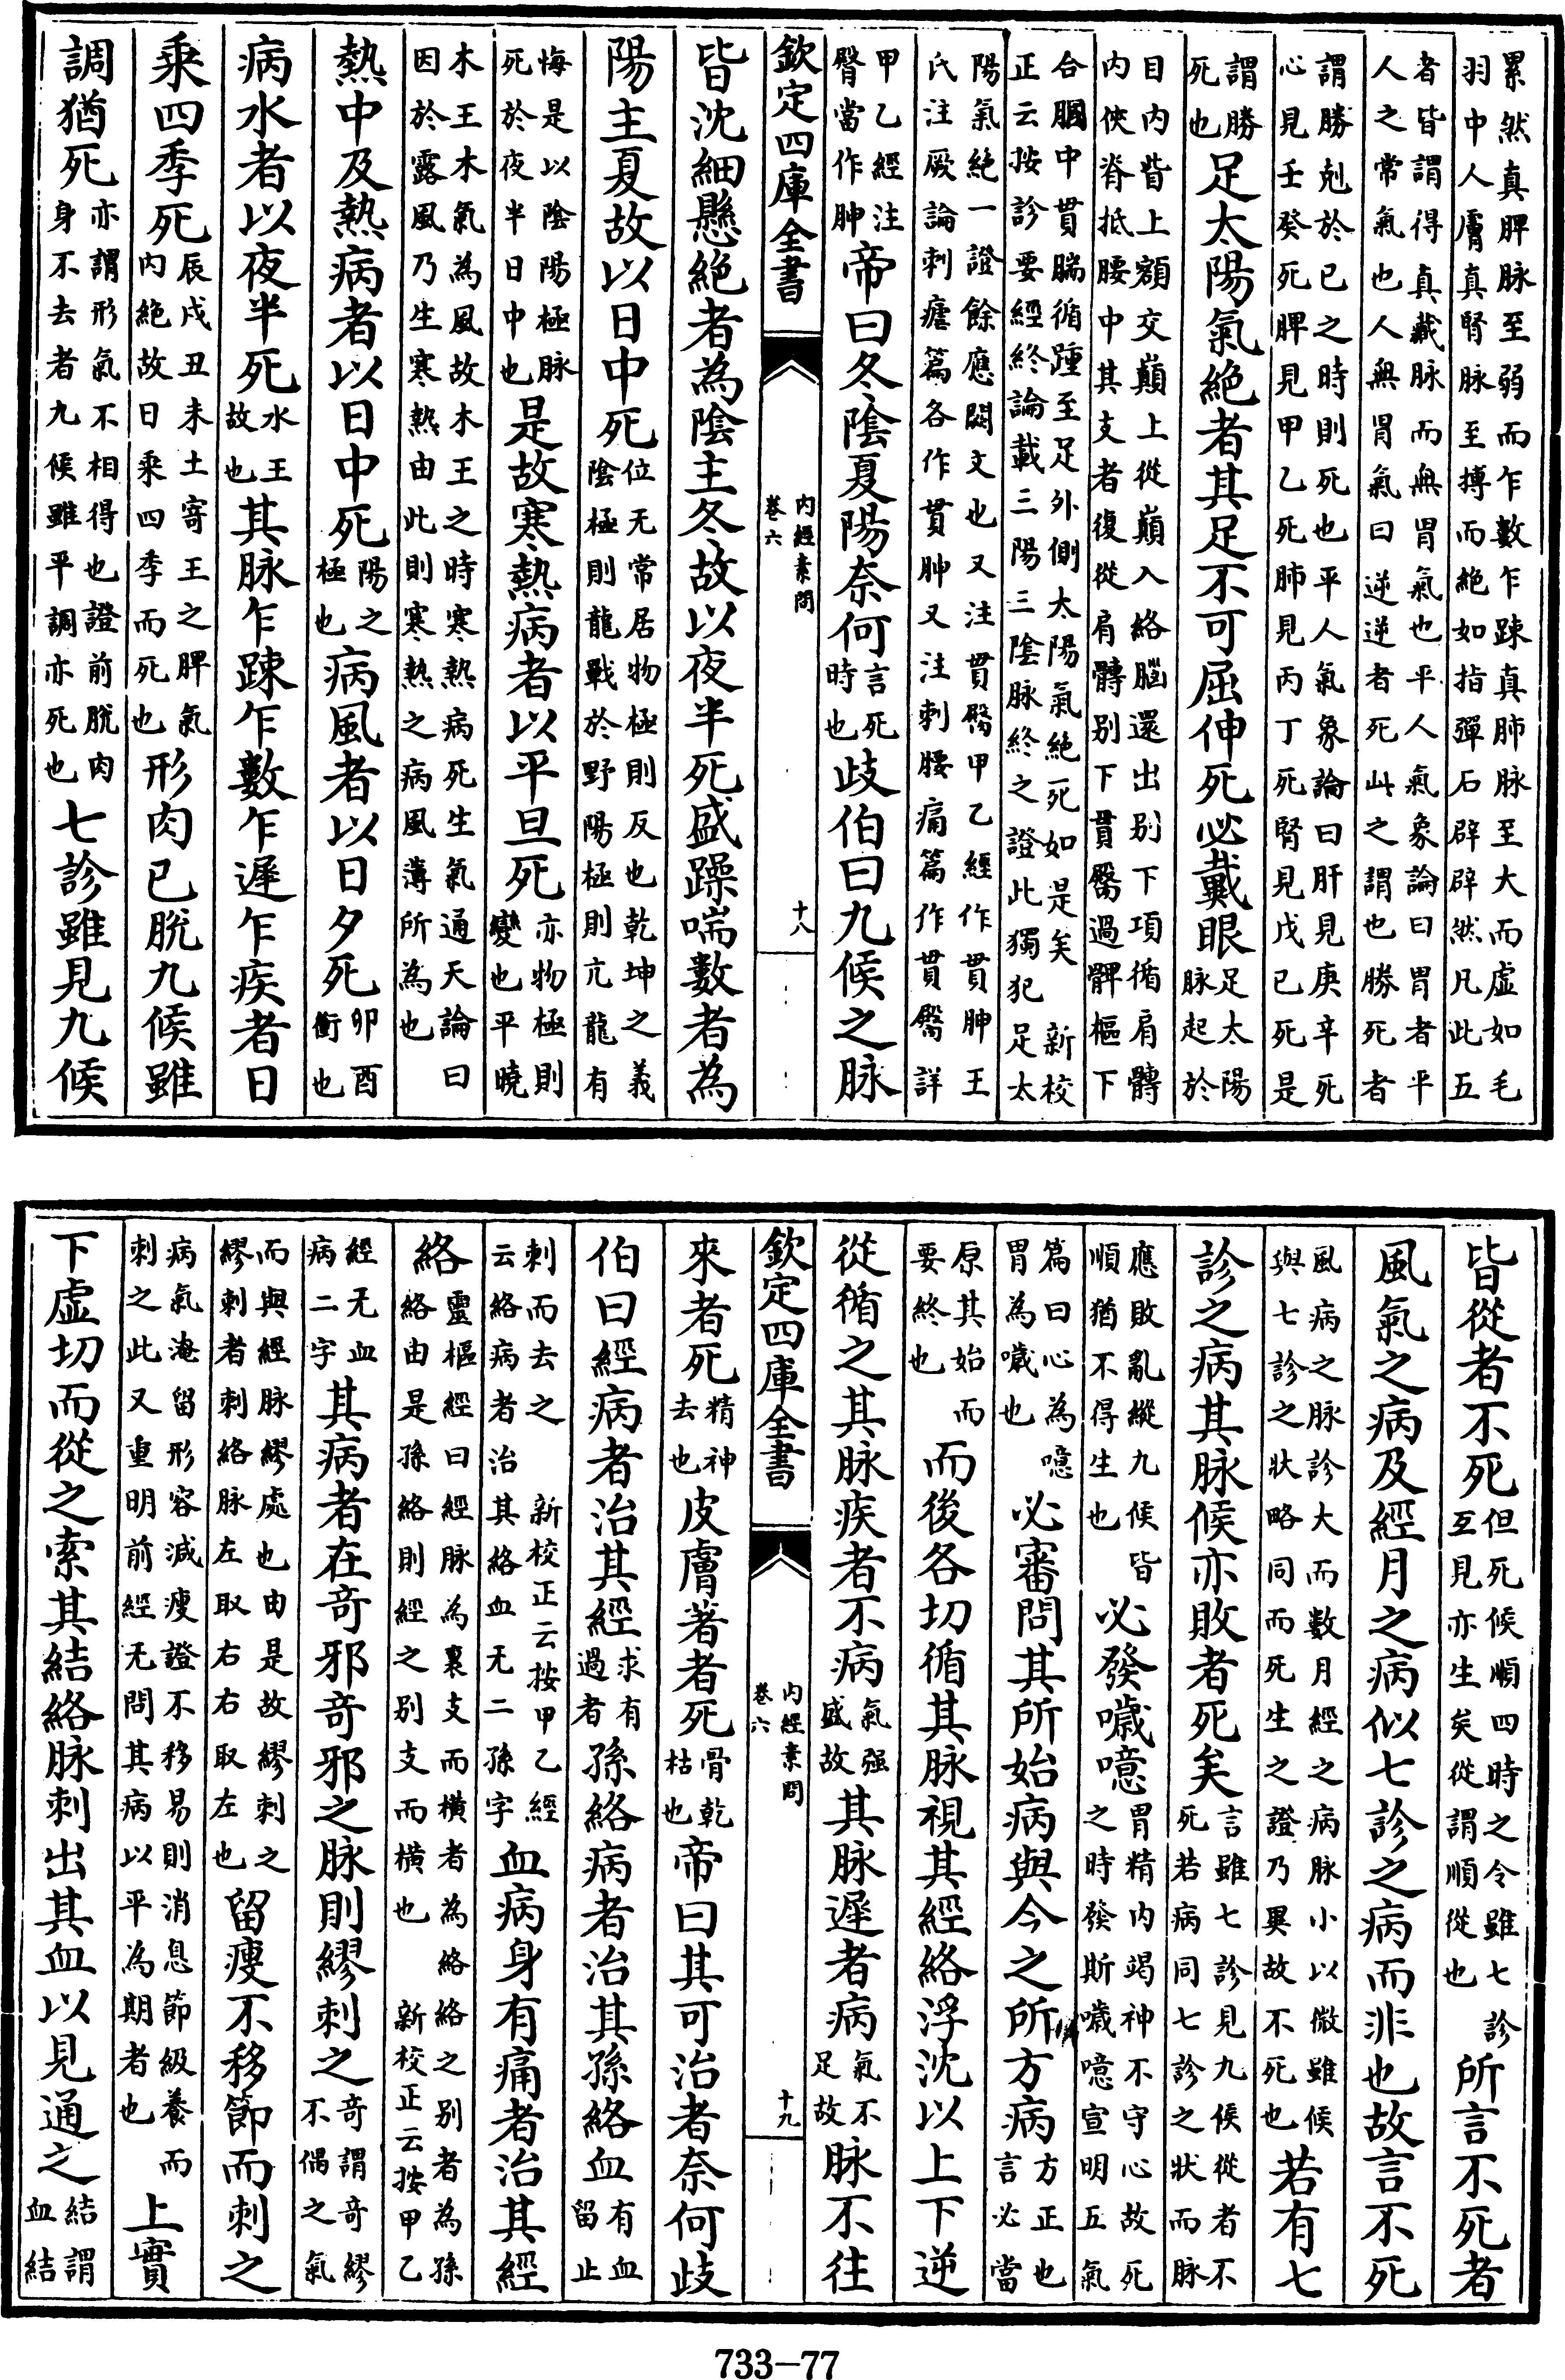 累然真脾脉至弱而乍數乍踈真肺脉至大而虛如毛
羽中人膚真腎脉至搏而絕如指彈石辟辟然凡此五
者皆謂得真藏脉而無胃氣也平人氣象論曰胃者平
人之常氣也人無胃氣曰逆逆者死此之謂也勝死者
謂勝剋於已之時則死也平人氣象論曰肝見庚辛死
心見壬癸死脾見甲乙死肺見丙丁死腎見戊已死是
謂勝死也足太陽氣絕者其足不可屈伸死必戴眼足太陽脉起於
目内眥上額交巔上從巔入絡腦還出别下項循肩髆
内俠脊抵腰中其支者復從肩髆别下貫臀過髀樞下
合膕中貫腨循踵至足外側太陽氣絕死如是矣 新校
正云按診要經終論載三陽三陰脉終之證此獨犯足太
陽氣絕一證餘應闕文也又注貫臀甲乙經作貫胂王
氏注厥論刺瘧篇各作貫胂又注刺腰痛篇作貫臀詳
甲乙經注臀當作胂帝曰冬陰夏陽奈何言死時也歧伯曰九候之脉
欽定四庫全書 内經素問 卷六 十八
皆沈細懸絕者為陰主冬故以夜半死盛躁喘數者為
陽主夏故以日中死位无常居物極則反也乾坤之義陰極則龍戰於野陽極則亢龍有
悔是以陰陽極脉死於夜半日中也是故寒熱病者以平旦死亦物極則變也平曉
木王木氣為風故木王之時寒熱病死生氣通天論曰
因於露風乃生寒熱由此則寒熱之病風薄所為也
熱中及熱病者以日中死陽之極也病風者以日夕死卯酉衝也
病水者以夜半死水王故也其脉乍踈乍數乍遲乍疾者日
乘四季死辰戌丑未土寄王之脾氣内絕故日乘四季而死也形肉已脫九候雖
調猶死亦謂形氣不相得也證前脫肉身不去者九候雖平調亦死也七診雖見九候
皆從者不死但死候順四時之令雖七診互見亦生矣從謂順從也所言不死者
風氣之病及經月之病似七診之病而非也故言不死
風病之脉診大而數月經之病脉小以微雖候與七診之狀略同而死生之證乃異故不死也若有七
診之病其脉候亦敗者死矣言雖七診見九候從者不死若病同七診之狀而脉
應敗亂縱九候皆順猶不得生也必發噦噫胃精内竭神不守心故死之時發斯噦噫宣明五氣
篇曰心為噫胃為噦也必審問其所始病與今之所方病方正也言必當
原其始而要終也而後各切循其脉視其經絡浮沈以上下逆
從循之其脉疾者不病氣强盛故其脉遲者病氣不足故脉不往
欽定四庫全書 内經素問 卷六 十九
來者死精神去也皮膚著者死骨乾枯也帝曰其可治者奈何歧
伯曰經病者治其經求有過者孫絡病者治其孫絡血有血留止
刺而去之 新校正云按甲乙經云絡病者治其絡血无二孫字血病身有痛者治其經
絡靈樞經曰經脉為裏支而横者為絡絡之别者為孫絡由是孫絡則經之别支而横也 新校正云按甲乙
經无血病二字其病者在奇邪奇邪之脉則繆刺之奇謂奇繆不偶之氣
而與經脉繆處也由是故繆刺之繆刺者刺絡脉左取右右取左也留瘦不移節而刺之
病氣淹留形容減瘦證不移易則消息節級養而刺之此又重明前經无問其病以平為期者也上實
下虛切而從之索其結絡脉刺出其血以見通之結謂血結
733-77